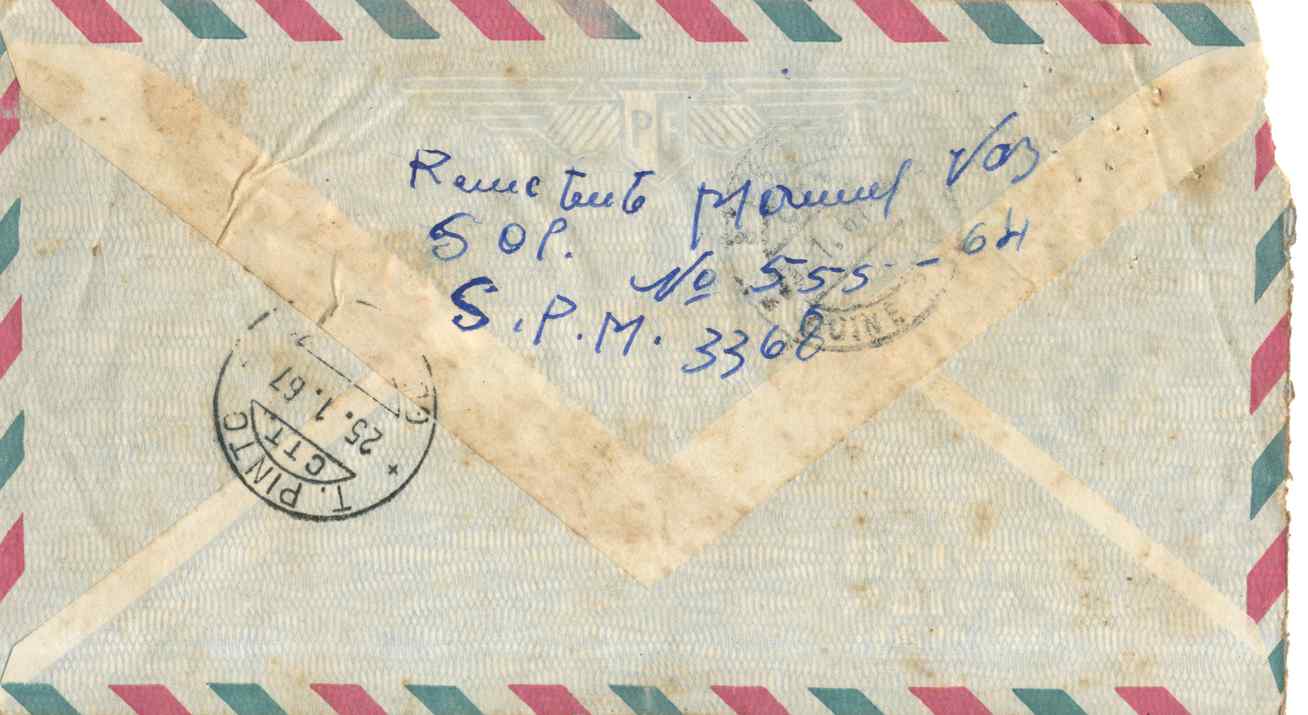 Remetente Manuel Vaz
SOL.
No 555-64
S.P.M. 3368
T. PINTO
CTT.
25.1.67
GUINE